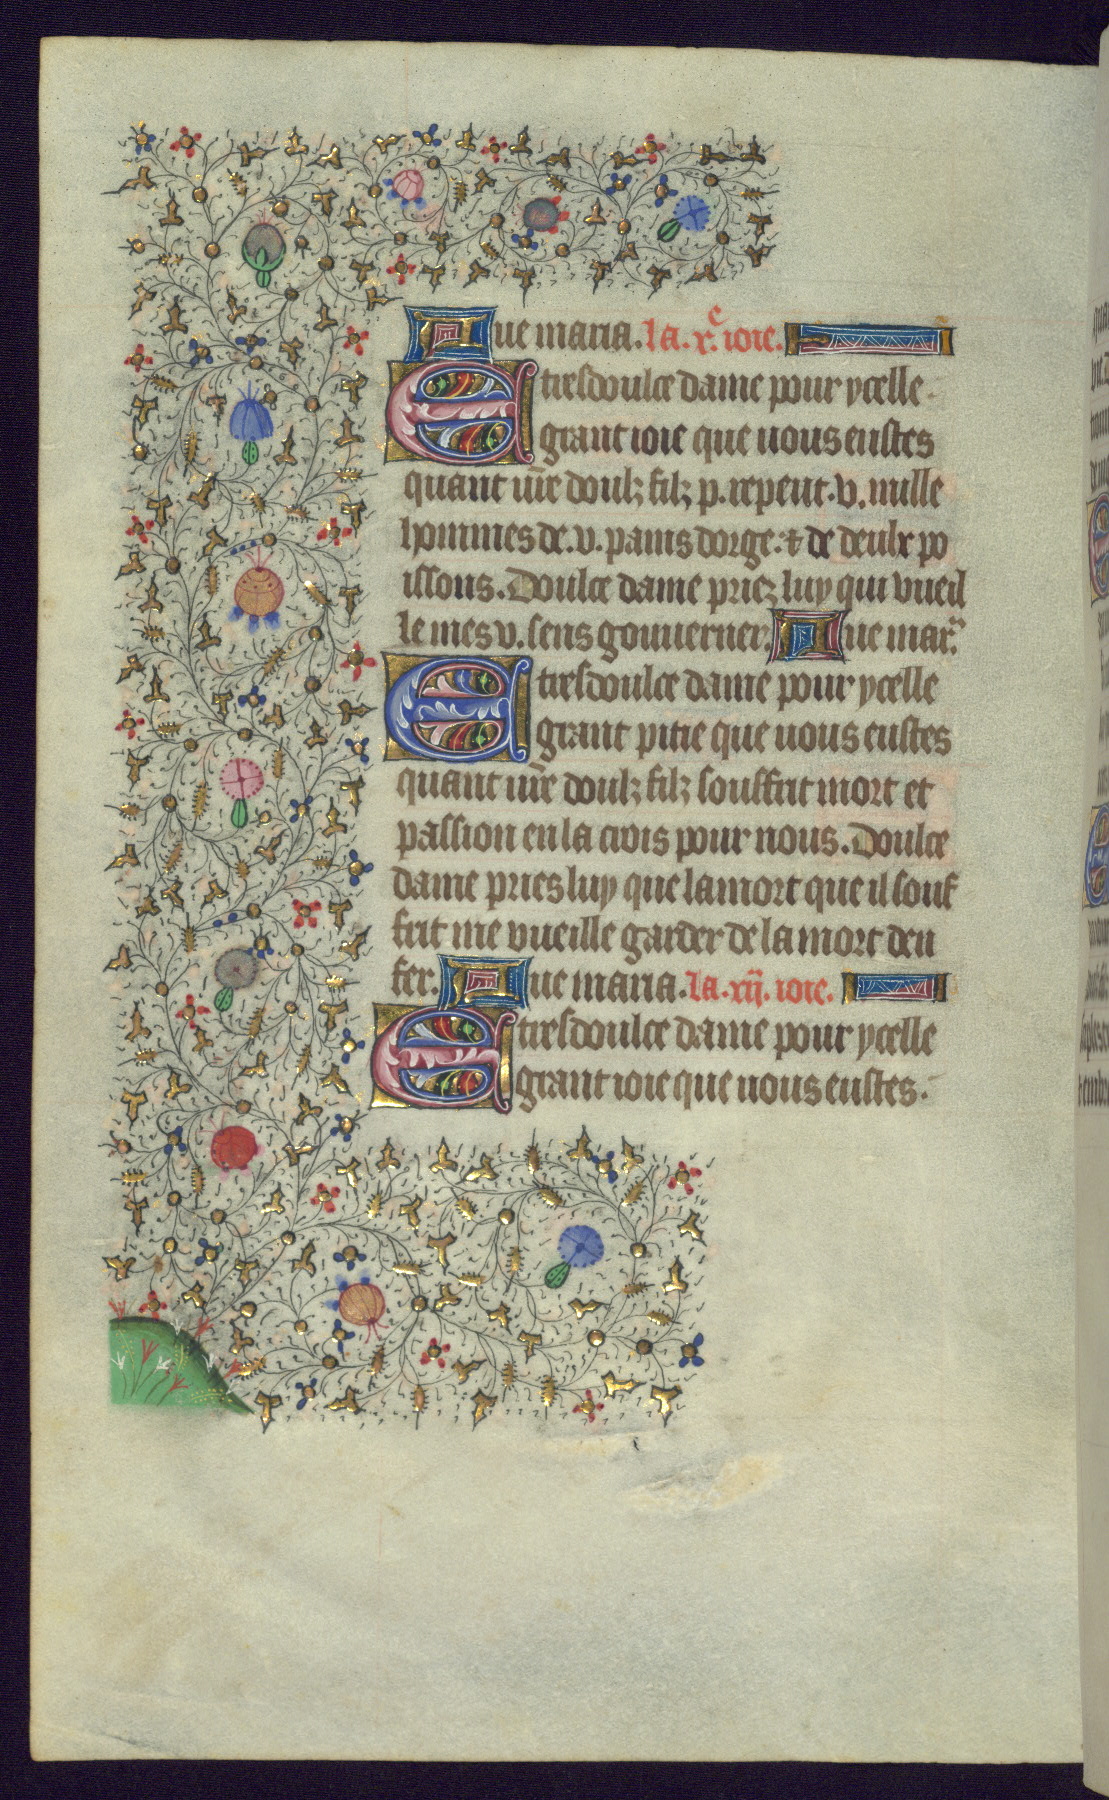 Aue maria. la .xe. ioie.
E tresdoulce dame pour ycelle
grant ioie que uous eustes
quant ur̄e doulz filz p. repeut .v. mille
hommes de .v. pains dorge. ⁊ de deulx po
issons. Doulce dame priez luy qui vueil
le mes v. sens gouuerner. Aue mar
E tresdoulce dame pour ycelle
grant pitie que uous eustes
quant ur̄e doulz filz souffrit mort et
passion en la crois pour nous. Doulce
dame pries luy que la mort que il souf
frit me vueille garder de la mort den
fer. Aue maria. la .xii. ioie.
E tresdoulce dame pour ycelle
grant ioie que uous eustes.